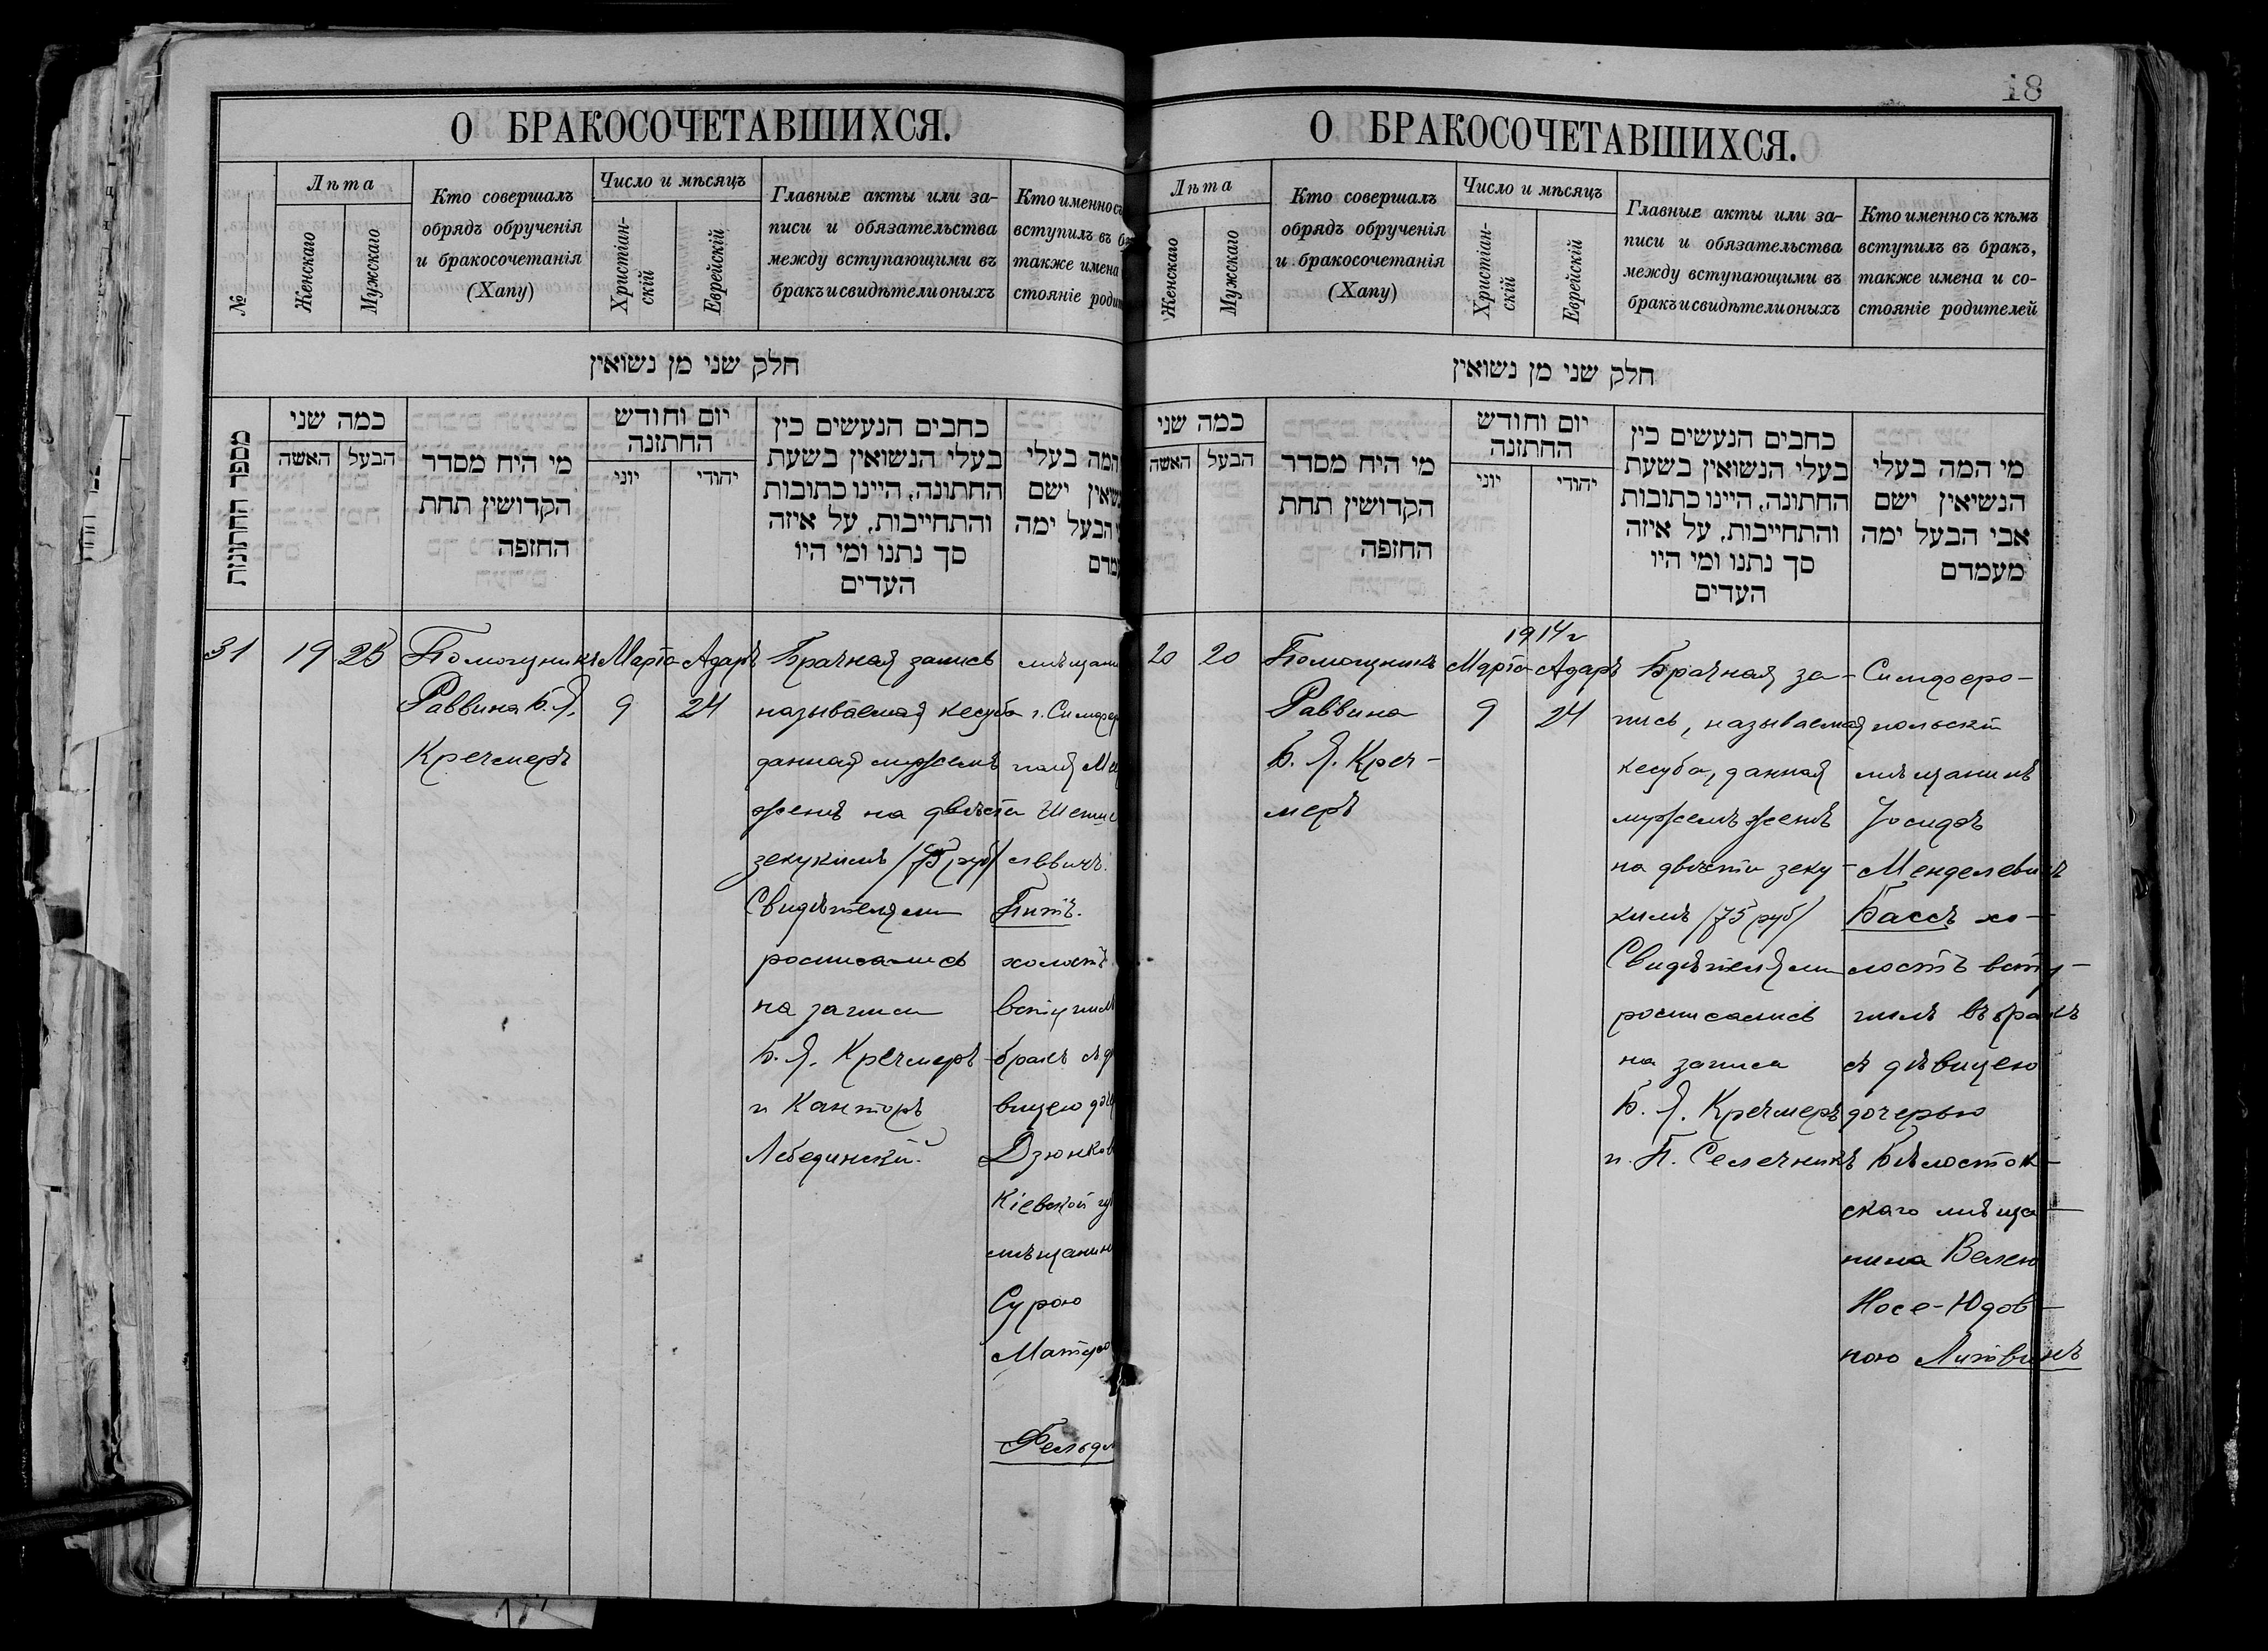 О БРАКОСОЧЕТАВШИХСЯ.
№
Лѣта
Женскаго
Мужскаго
Кто совершалъ
обрядъ обрученія
и бракосочетанія
(Хапу)
Число и мѣсяцъ
Христіан-
скій
Еврейскій
Главные акты или за-
писи и обязательства
между вступающими въ
бракъ и свидѣтели оныхъ
Кто именно съ
вступилъ въ б
также имена
стояніе роди
חלק שני מן נשואין
מספר החתונות
כמה שני
האשה
הבעל
מי היח מסדר
הקדושין תחת
החופה
יום וחודש
החתונה
יוני
יהודי
כתבים הנעשים בין
בעלי הנשואין בשעת
החתונה, היינו כתובות
והתחייבות, על איזה
סך נתנו ומי היו
העדים
המה בעלי
שיאין ישם
הבעל ימה
מדם
31
19
25
Помощникъ
Раввина Б. Я.
Кречмеръ
Марта
9
Адаръ
24
Брачная запись
называемая кесуба
данная мужемъ
женѣ на двѣсти
зекукимъ /75 руб/
Свидѣтелями
росписались
на записи
Б. Я. Кречмеръ
и Канторъ
Лебединскій.
мѣщани
г. Симфер
поля Ме
левичъ.
Питъ.
холостъ.
вступил
бракъ съ дѣ
вицею доч
Дзюнков
Кіевской гу
мѣщанин
Сурою
Фельдм
18
О БРАКОСОЧЕТАВШИХСЯ.
Лѣта
Женскаго
Мужскаго
Кто совершалъ
обрядъ обрученія
и бракосочетанія
(Хапу)
Число и мѣсяцъ
Христіан-
скій
Еврейскій
Главные акты или за-
писи и обязательства
между вступающими въ
бракъ и свидѣтели оныхъ
Кто именно съ кѣмъ
вступилъ въ бракъ,
также имена и со-
стояніе родителей
חלק שני מן נשואין
כמה שני
האשה
הבעל
מי היח מסדר
הקדושין תחת
החופה
יום וחודש
החתונה
יוני
יהודי
כתבים הנעשים בין
בעלי הנשואין בשעת
החתונה, היינו כתובות
והתחייבות, על איזה
סך נתנו ומי היו
העדים
מי המה בעלי
הנשיאין ישם
אבי הבעל ימה
מעמדם
20
20
Помощникъ
Раввина
Б. Я. Креч-
меръ
1914 г
Марта
9
Адаръ
24
Брачная за-
пись, называемая
кесуба, данная
мужемъ женѣ
на двѣсти зеку-
кимъ /75 руб/
Свидѣтелями
росписались
на записи
Б. Я. Кречмеръ
и П. Селечникъ
Симферо-
польскій
мѣщанинъ
Іосифъ
Менделевичъ
Бассъ хо-
лостъ всту-
пилъ въ бракъ
съ дѣвицею
дочерью
Бѣлосток-
скаго мѣща-
нина Велею
Носе-Юдов-
ною Литвинъ